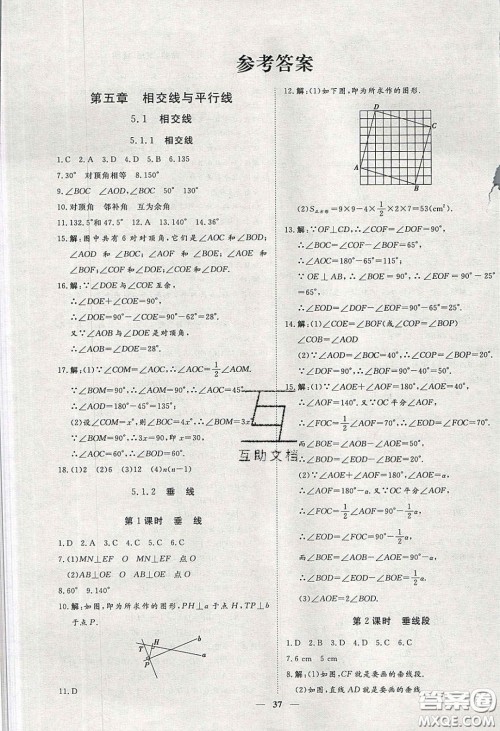 参考答案
第五章 相交线与平行线
5.1 相交线
5.1.1 相交线
1.C 2.A 3.D 4.A 5.B 6.135
7.30° 对顶角相等 8.150°
9.∠BOC ∠AOD、∠BOC ∠AOE
10.对顶角 邻补角 互为余角
11.132.5°和47.5° 12.A 13.A 14.36°
15.解:图中共有6对对顶角,它们是∠AOC和∠BOD;
∠AOF和∠BOE;∠DOF和∠COE;∠AOE和
∠BOF;∠COF和∠DOE;∠AOD和∠BOC.
16.解:∵∠DOE与∠COE互余,
∴∠DOE+∠COE=90°,
∴∠DOC=90°-∠COE=90°-62°=28°.
又∵∠AOB与∠DOE是对顶角,
∴∠AOB=∠DOE=28°.
17.解:(1)∵∠COM=∠AOC,∴∠AOC=1/2∠AOM.
∵∠BOM=90°,∴∠AOM=90°,∴∠AOC=45°,
∴∠AOD=180°-45°=135°;
(2)设∠COM=x°,则∠BOC=4x°,∴∠BOM=3x°.
∵∠BOM=90°,∴3x=90,即x=30,
∴∠AOC=60°.
18.(1)2 (2)6 (3)12 (4)n(n-1)
5.1.2 垂线
第1课时 垂线
1.D 2.D 3.C 4.D 5.D 6.B
7.(1)MN⊥OF MN OF 点O
(2)AD⊥OE AD OE 点O
8.60° 9.140°
10.解:如图,即为所求作的图形,PH⊥a于点H,TP⊥b
于点P.
T H b
P a
11.D
12.解:(1)如下图,即为所求作的图形.
D
C
A
B
(2)S正方形=9×9-4×1/2×2×7=53(cm²).
13.解:∵OF⊥CD,∴∠COF=90°,
∴∠BOC=90°-∠BOF=65°,
∴∠AOC=180°-65°=115°;
∵OE⊥AB,∴∠BOE=90°,∴∠EOF=90°-25°
=65°,
∴∠EOD=∠DOF-∠EOF=90°-65°=25°.
14.解:(1)∠COE=∠BOF(或∠COF=∠BOD或
∠COB=∠AOD)
15.解:(1)∵∠AOE+∠AOF=180°,∠AOE=40°,
∴∠AOF=140°.又∵OC平分∠AOF,
∴∠FOC=1/2∠AOF=70°,∴∠EOD=∠FOC=70°.
而∠BOE=∠AOB-∠AOE=50°,
∴∠BOD=∠EOD-∠BOE=20°;
(2)∵∠AOE+∠AOF=180°,∠AOE=α,
∴∠AOF=180°-α.又∵OC平分∠AOF,
∴∠FOC=1/2∠AOF=90°-1/2α,
∴∠EOD=∠FOC=90°-1/2α.
而∠BOE=∠AOB-∠AOE=90°-α,
∴∠BOD=∠EOD-∠BOE=1/2α;
(3)∠AOE=2∠BOD.
第2课时 垂线段
1.D 2.D 3.A 4.D 5.B 6.C
7.6 cm 5 cm
8.解:(1)如图,CF就是要画的垂线段.
(2)如图,直线AD就是要画的垂线.
互助文档
37
答案圈
MXQE.COM